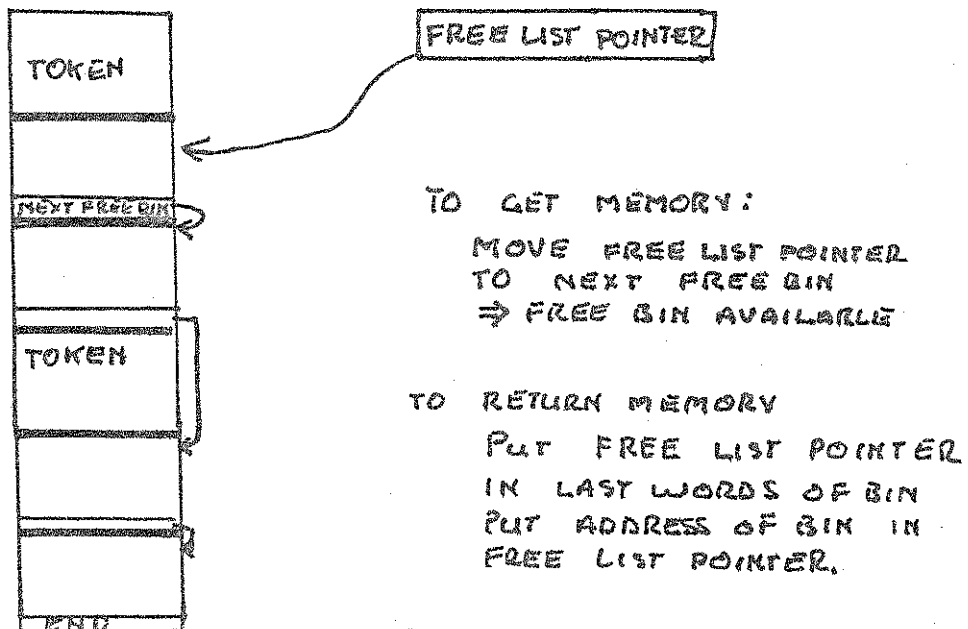 FREE LIST POINTER
TOKEN
NEXT FREE BIN
TO GET MEMORY:
MOVE FREE LIST POINTER
TO NEXT FREE BIN
⇒ FREE BIN AVAILABLE
TOKEN
TO RETURN MEMORY
PUT FREE LIST POINTER
IN LAST WORDS OF BIN
PUT ADDRESS OF BIN IN
FREE LIST POINTER.
END